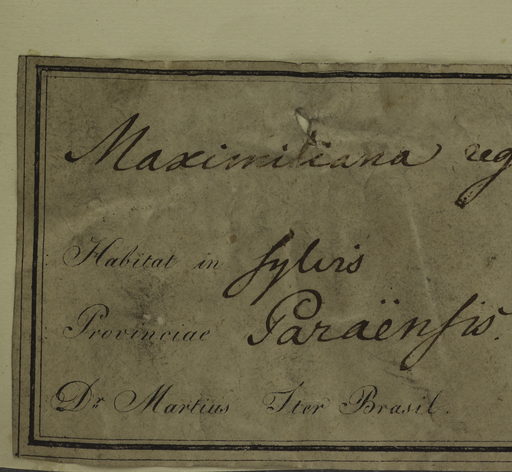 Maximiliana reg
Habitat in sylvis
Provinciae Paraënsis.
Dr Martius Iter Brasil.